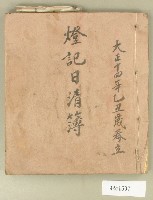 大正十四年乙丑歲荅立
燈記日清簿